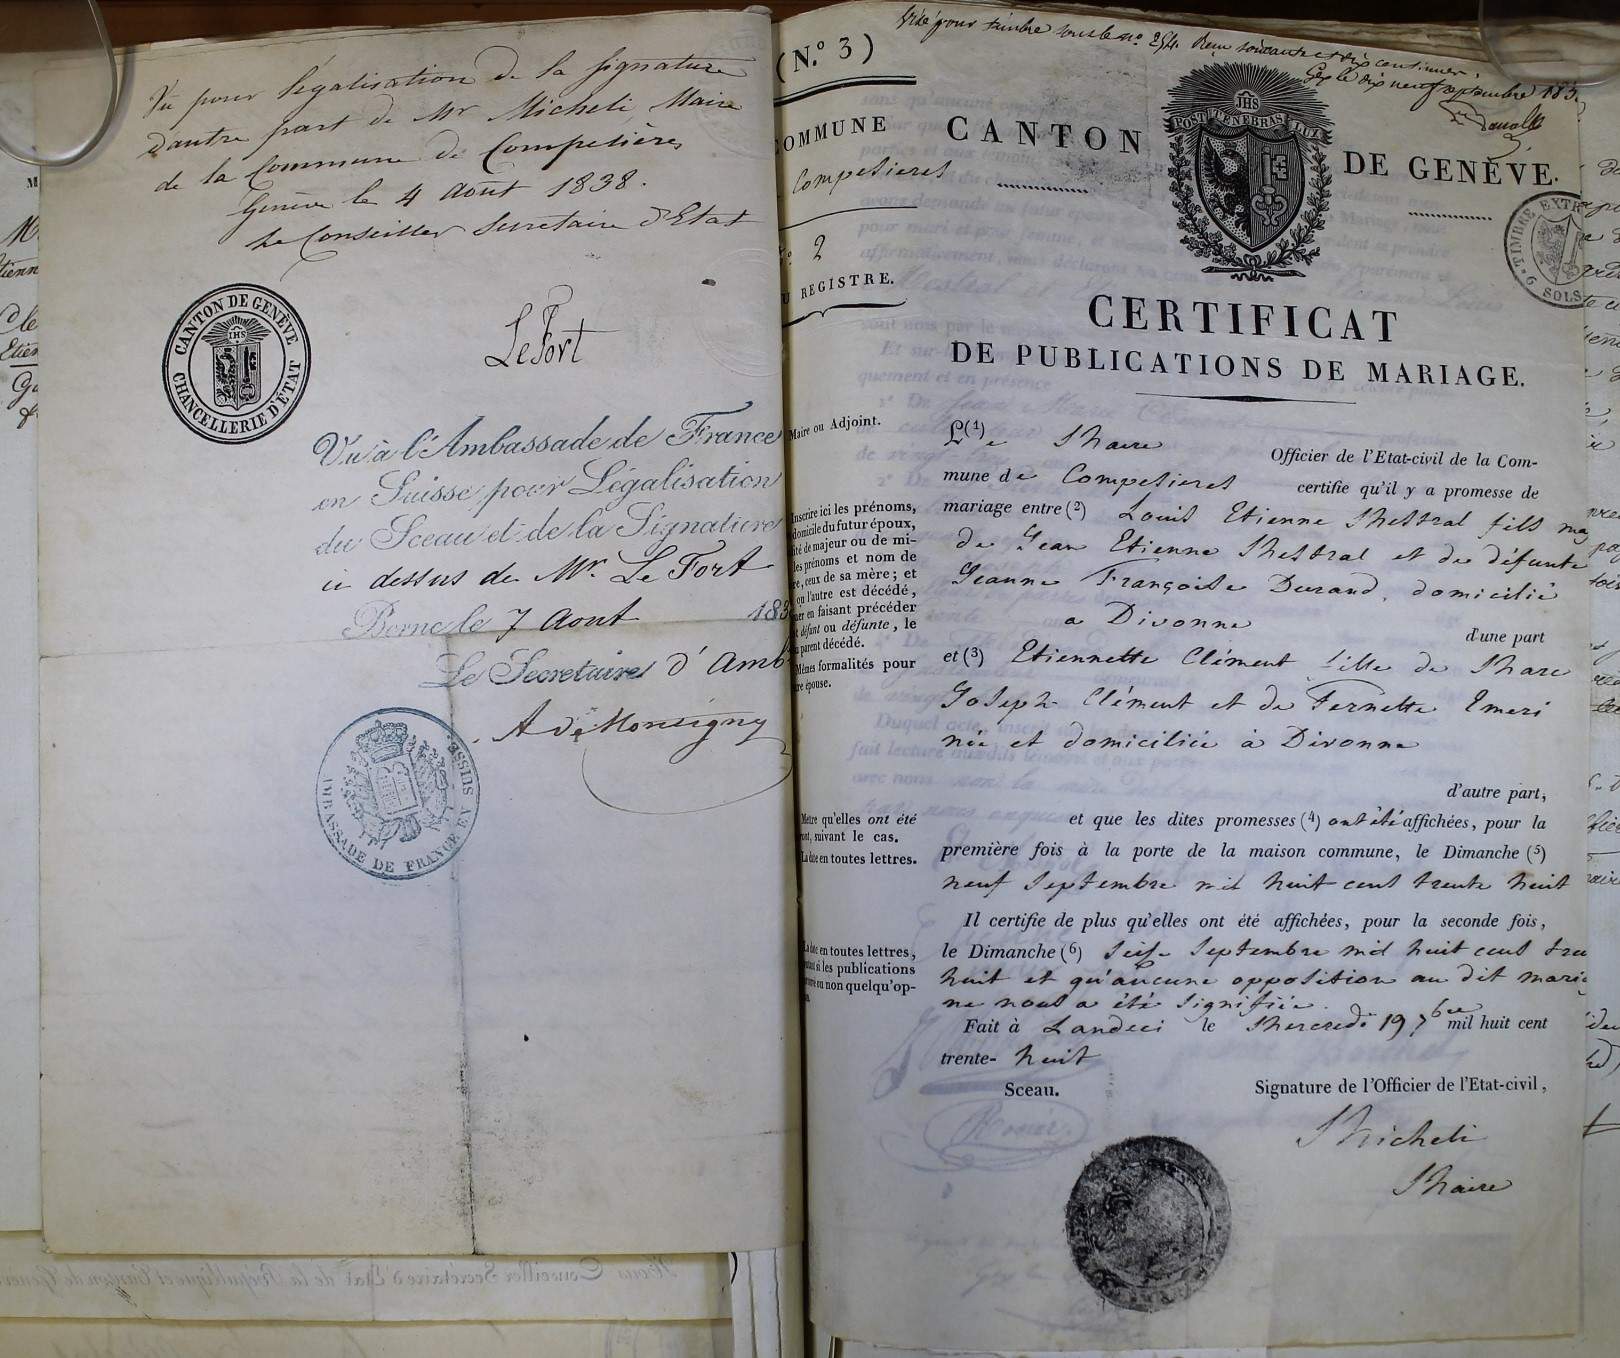 Vu pour légalisation de la signature
d'autre part de Mr Micheli Maire
de la Commune de Compesières
Genève le 4 Août 1838.
Le Conseiller Secretaire d'Etat
LeFort
CANTON DE GENÈVE
CHANCELLERIE D'ÉTAT
JHS
Vu à l'Ambassade de France
en Suisse, pour Légalisation
du Sceau et de la Signature
ci dessus de Mr. Le Fort
Berne, le 7 Aout 183
Le Secretaire d'Amb
A de Monsigny
AMBASSADE DE FRANCE EN SUISSE.
Visé pour timbre sous le no. 254. Reçu soixante et dix centimes.
Gex le dix neuf septembre 183
(N.° 3)
COMMUNE
Compesieres
2
REGISTRE.
CANTON DE GENÈVE.
JHS
POST TENEBRAS LUX
TIMBRE EXTR
9 SOLS
CERTIFICAT
DE PUBLICATIONS DE MARIAGE.
Maire ou Adjoint.
L(1)e Maire Officier de l'Etat-civil de la Com-
mune de Compesieres certifie qu'il y a promesse de
mariage entre (2) Louis Etienne Mestral fils maj
de Jean Etienne Mestral et de défunte
Jeanne Françoise Durand, domicilié
a Divonne
d'une part
et (3) Etiennette Clément fille de Marc
Joseph Clément et de Pernette Emeri
née et domiciliée à Divonne
d'autre part,
et que les dites promesses (4) ont été affichées, pour la
première fois à la porte de la maison commune, le Dimanche (5)
neuf Septembre mil huit cent trente huit
Il certifie de plus qu'elles ont été affichées, pour la seconde fois,
le Dimanche (6) seize Septembre mil huit cent tren
huit et qu'aucune opposition au dit maria
ne nous a été signifiée.
Fait à Landeci le Mercredi 19 7bre mil huit cent
trente- huit
Sceau. Signature de l'Officier de l'Etat-civil,
Micheli
Maire
Inscrire ici les prénoms,
domicile du futur époux,
lité de majeur ou de mi-
les prénoms et nom de
re, ceux de sa mère; et
ou l'autre est décédé,
uer en faisant précéder
défunt ou défunte, le
parent décédé.
Mêmes formalités pour
re épouse.
Mettre qu'elles ont été
ont, suivant le cas.
La date en toutes lettres.
La date en toutes lettres,
si les publications
ou non quelqu'op-